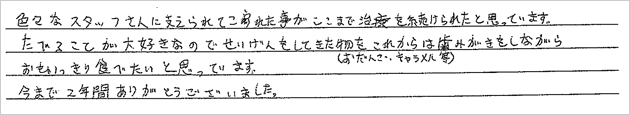 色々なスタッフさんに支えられてこられた事がここまで治療を続けられたと思っています。
たべることが大好きなのでせいげんをしてきた物をこれからは歯みがきをしながら
(おだんご、キャラメル等)
おもいっきり食べたいと思っています。
今まで2年間ありがとうございました。